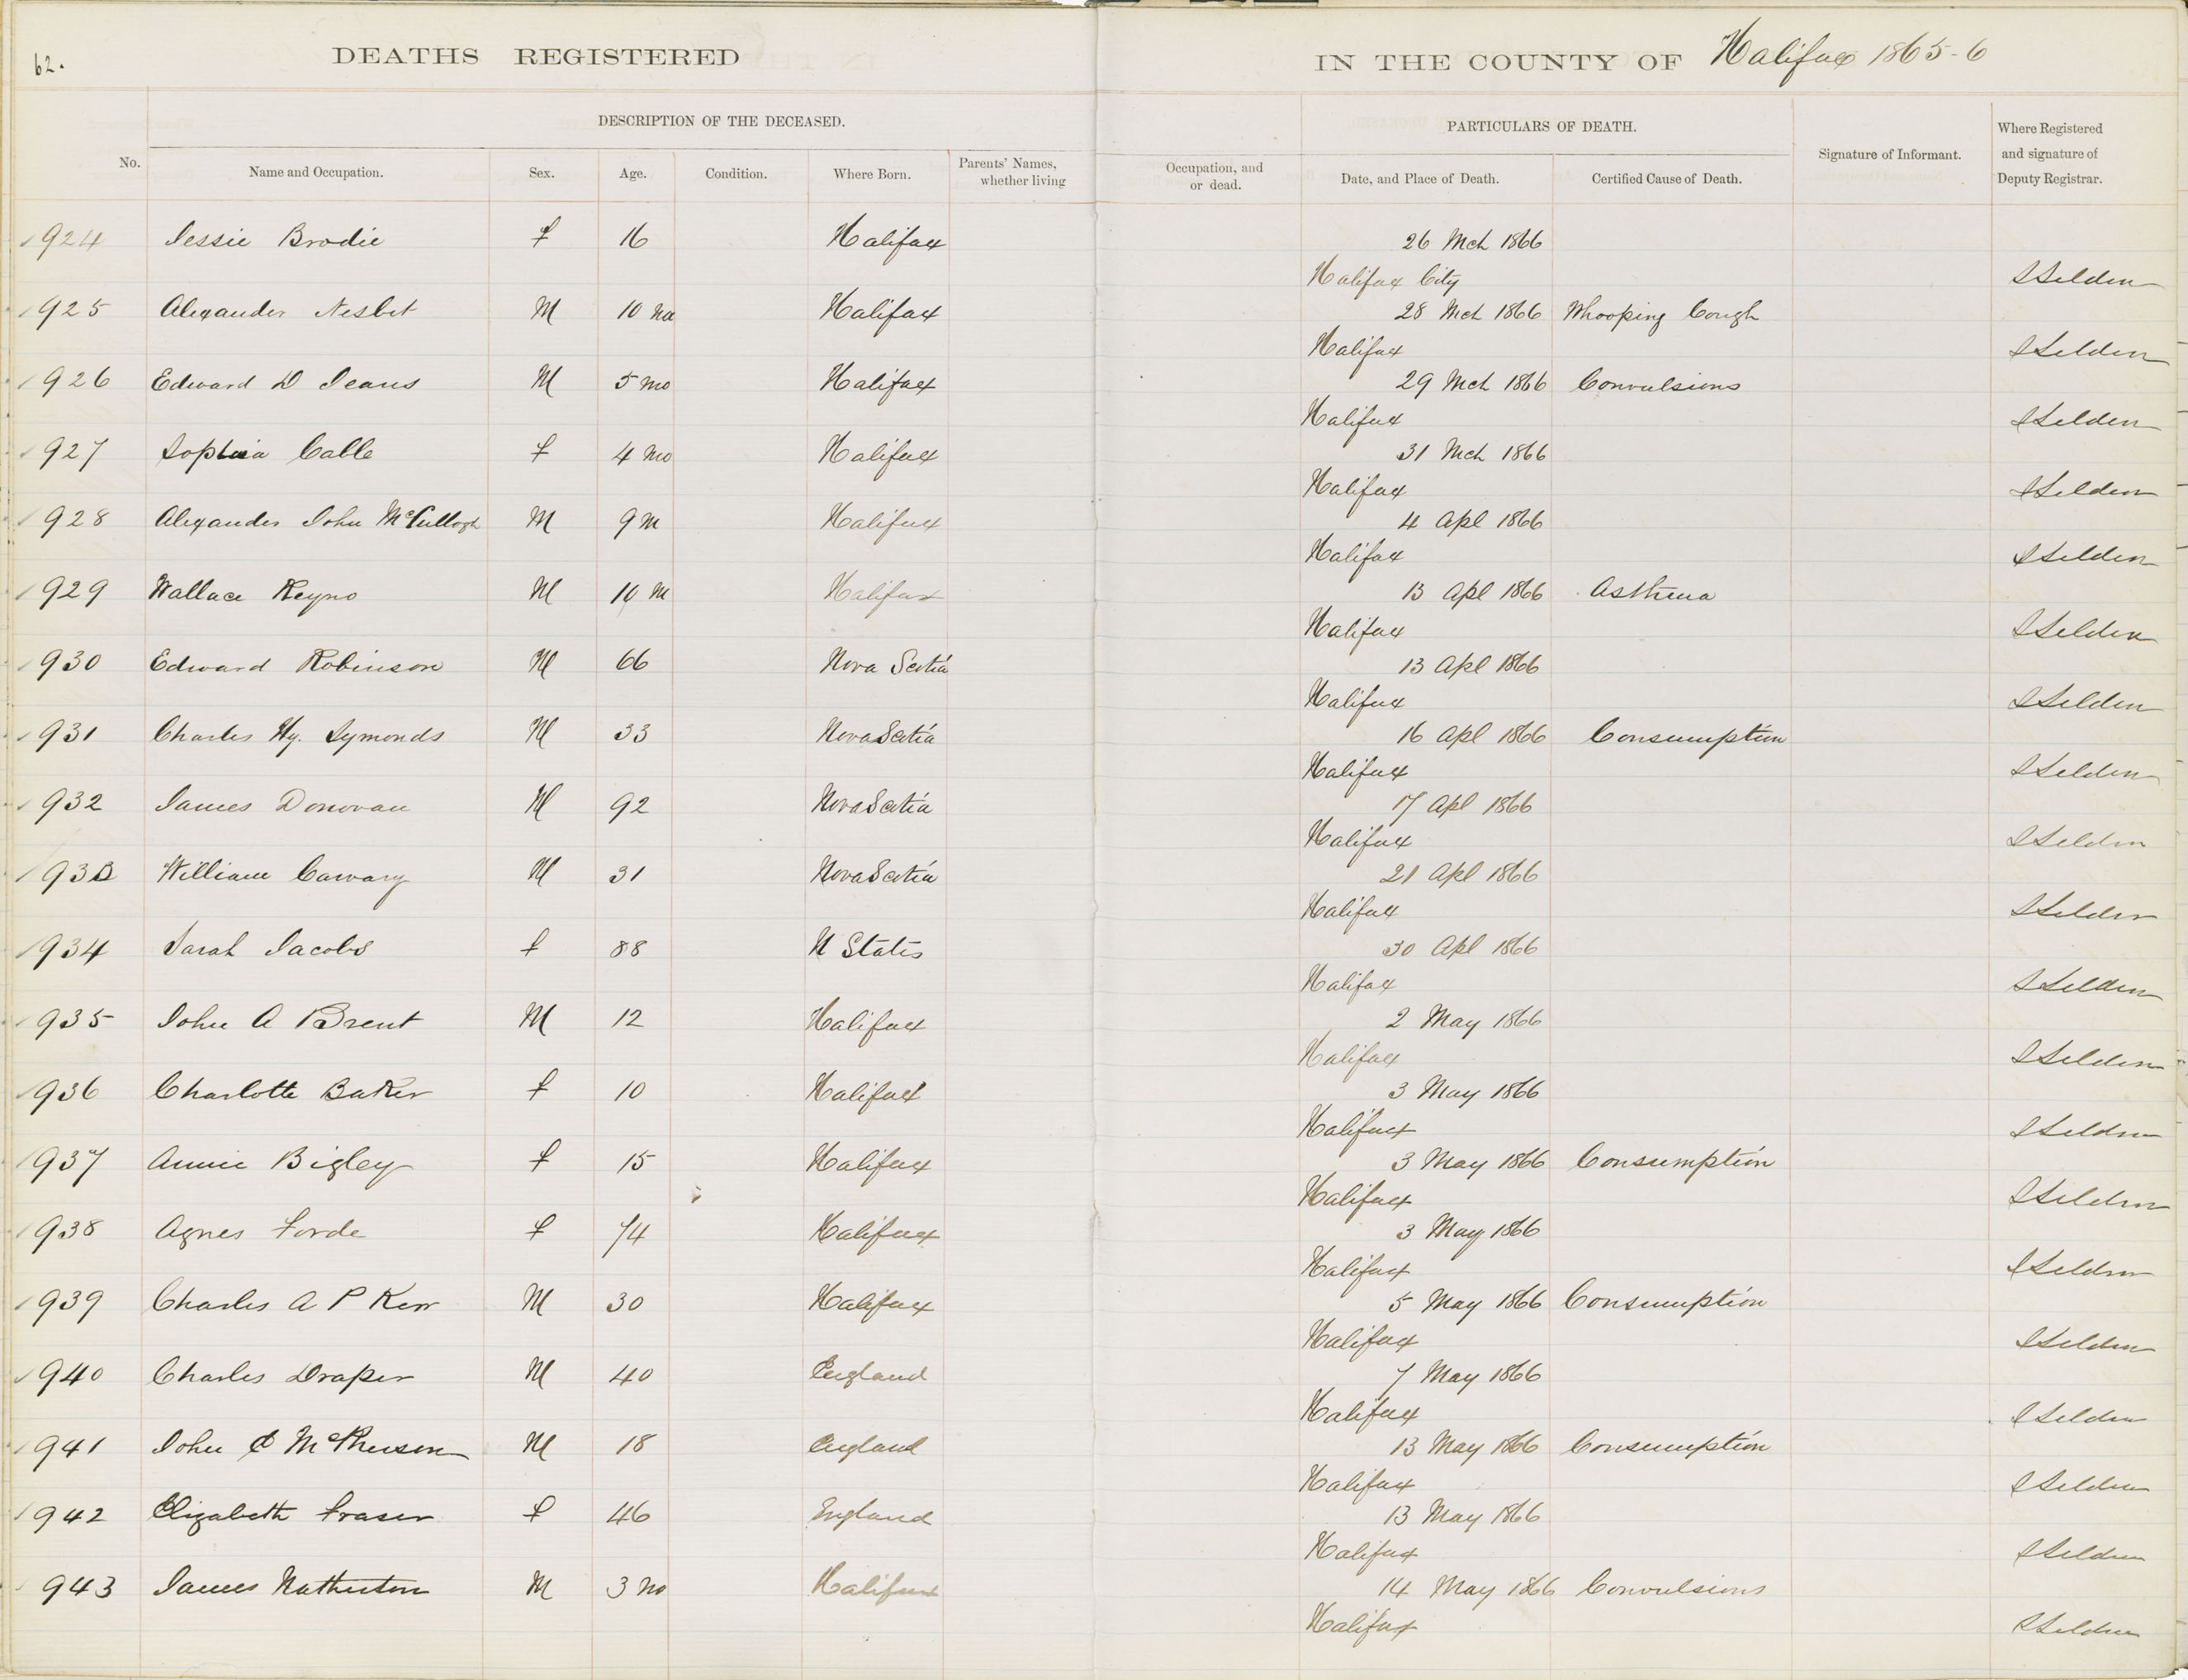 62.
DEATHS REGISTERED IN THE COUNTY OF Halifax 1865-6
DESCRIPTION OF THE DECEASED. PARTICULARS OF DEATH.
No. Name and Occupation. Sex. Age. Condition. Where Born. Parents' Names, whether living Occupation, and or dead. Date, and Place of Death. Certified Cause of Death. Signature of Informant. Where Registered and signature of Deputy Registrar.
924 Jessie Brodie f 16 Halifax 26 Mch 1866
Halifax City S Selden
925 Alexander Nesbet M 10 mo Halifax 28 Mch 1866 Whooping Cough
Halifax S Selden
926 Edward D Jeans M 5 mo Halifax 29 Mch 1866 Convulsions
Halifax S Selden
927 Sophia Calle f 4 mo Halifax 31 Mch 1866
Halifax S Selden
928 Alexander John McCullogh M 9 m Halifax 4 Apl 1866
Halifax S Selden
929 Wallace Reyno M 10 M Halifax 13 Apl 1866 Asthma
Halifax S Selden
930 Edward Robinson M 66 Nova Scotia 13 Apl 1866
Halifax S Selden
931 Charles Hy. Symonds M 33 Nova Scotia 16 Apl 1866 Consumption
Halifax S Selden
932 James Donovan M 92 Nova Scotia 17 Apl 1866
Halifax S Selden
933 William M 31 Nova Scotia 21 Apl 1866
Halifax S Selden
934 Sarah Jacobs f 88 U States 30 Apl 1866
Halifax S Selden
935 John A Brent M 12 Halifax 2 May 1866
Halifax S Selden
936 Charlotte Baker f 10 Halifax 3 May 1866
Halifax S Selden
937 Annie Bigley f 15 Halifax 3 May 1866 Consumption
Halifax S Selden
938 Agnes Forde f 74 Halifax 3 May 1866
Halifax S Selden
939 Charles A P Kerr M 30 Halifax 5 May 1866 Consumption
Halifax S Selden
940 Charles Draper M 40 England 7 May 1866
Halifax S Selden
941 John McPherson M 18 England 13 May 1866 Consumption
Halifax S Selden
942 Elizabeth Fraser f 46 England 13 May 1866
Halifax S Selden
943 James M 3 mo Halifax 14 May 1866 Convulsions
Halifax S Selden